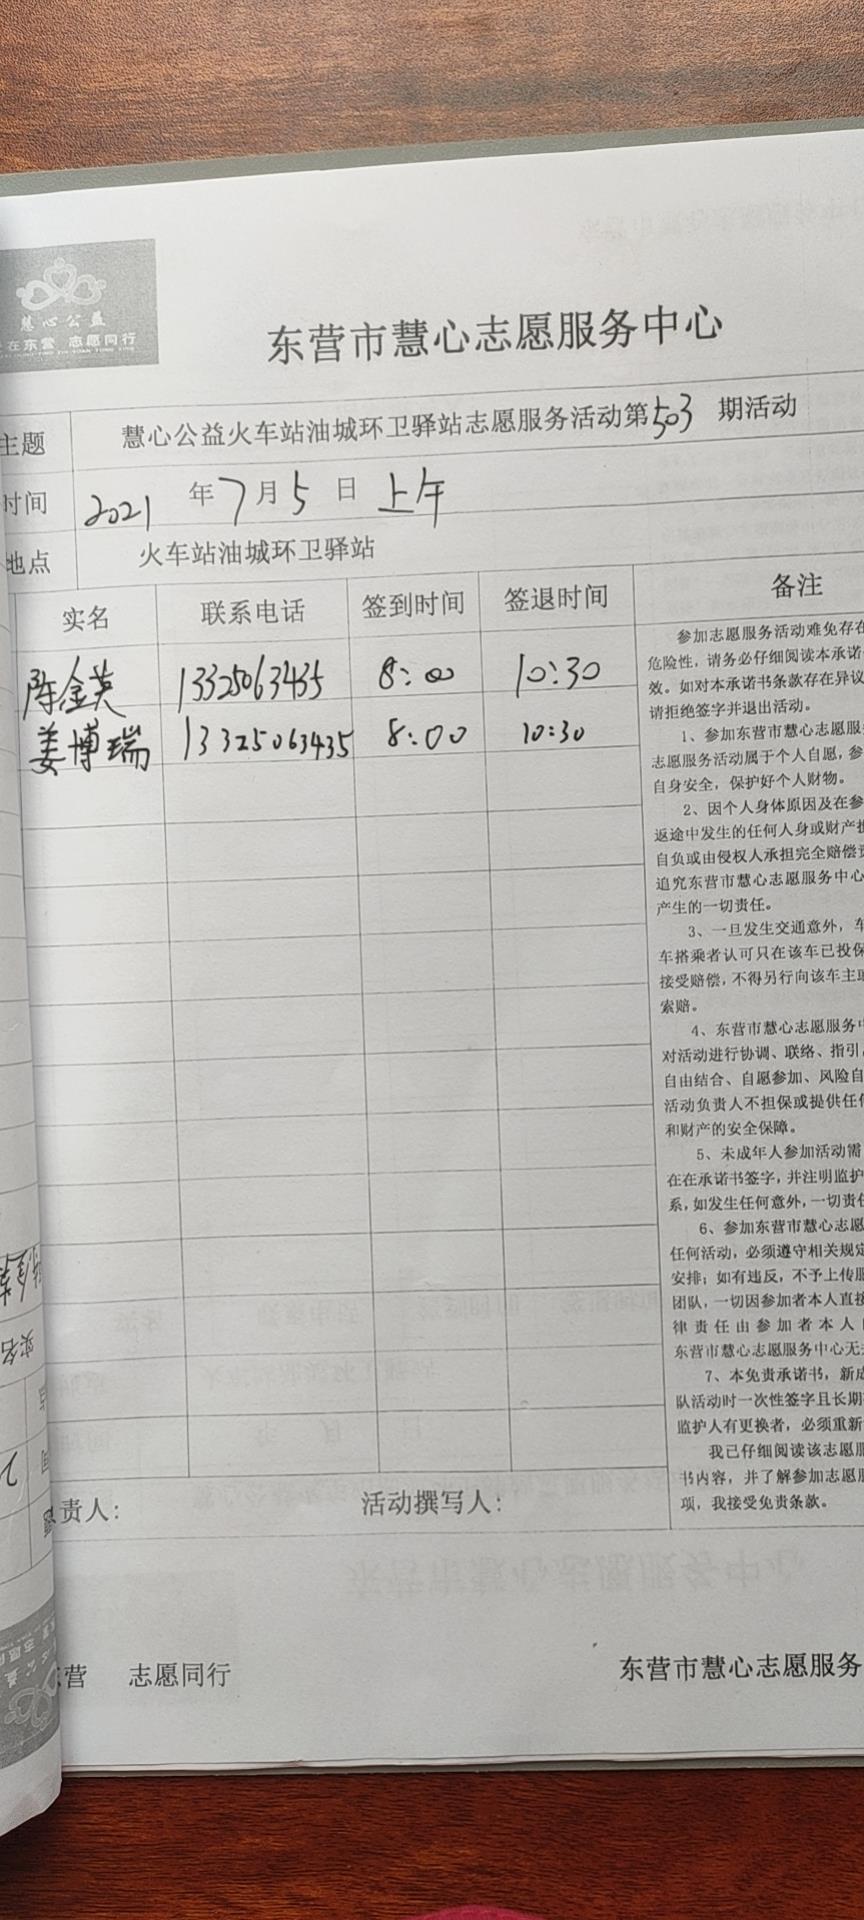 慧心公益
在东营 志愿同行
东营市慧心志愿服务中心
主题 慧心公益火车站油城环卫驿站志愿服务活动第503期活动
时间 2021年7月5日 上午
地点 火车站油城环卫驿站
实名 联系电话 签到时间 签退时间 备注
陈金英 13325063435 8:00 10:30
姜博瑞 13325063435 8:00 10:30
参加志愿服务活动难免存在
危险性，请务必仔细阅读本承诺
效。如对本承诺书条款存在异议
请拒绝签字并退出活动。
1、参加东营市慧心志愿服
志愿服务活动属于个人自愿，参
自身安全，保护好个人财物。
2、因个人身体原因及在参
返途中发生的任何人身或财产
自负或由侵权人承担完全赔偿
追究东营市慧心志愿服务中心
产生的一切责任。
3、一旦发生交通意外，车
车搭乘者认可只在该车已投保
接受赔偿，不得另行向该车主
索赔。
4、东营市慧心志愿服务
对活动进行协调、联络、指引
自由结合、自愿参加、风险自
活动负责人不担保或提供任
和财产的安全保障。
5、未成年人参加活动需
在在承诺书签字，并注明监护
系，如发生任何意外，一切责
6、参加东营市慧心志愿
任何活动，必须遵守相关规定
安排；如有违反，不予上传
团队，一切因参加者本人直接
律责任由参加者本人
东营市慧心志愿服务中心无
7、本免责承诺书，新成
队活动时一次性签字且长期
监护人有更换者，必须重新
我已仔细阅读该志愿服
书内容，并了解参加志愿
项，我接受免责条款。
责人： 活动撰写人：
营 志愿同行 东营市慧心志愿服务